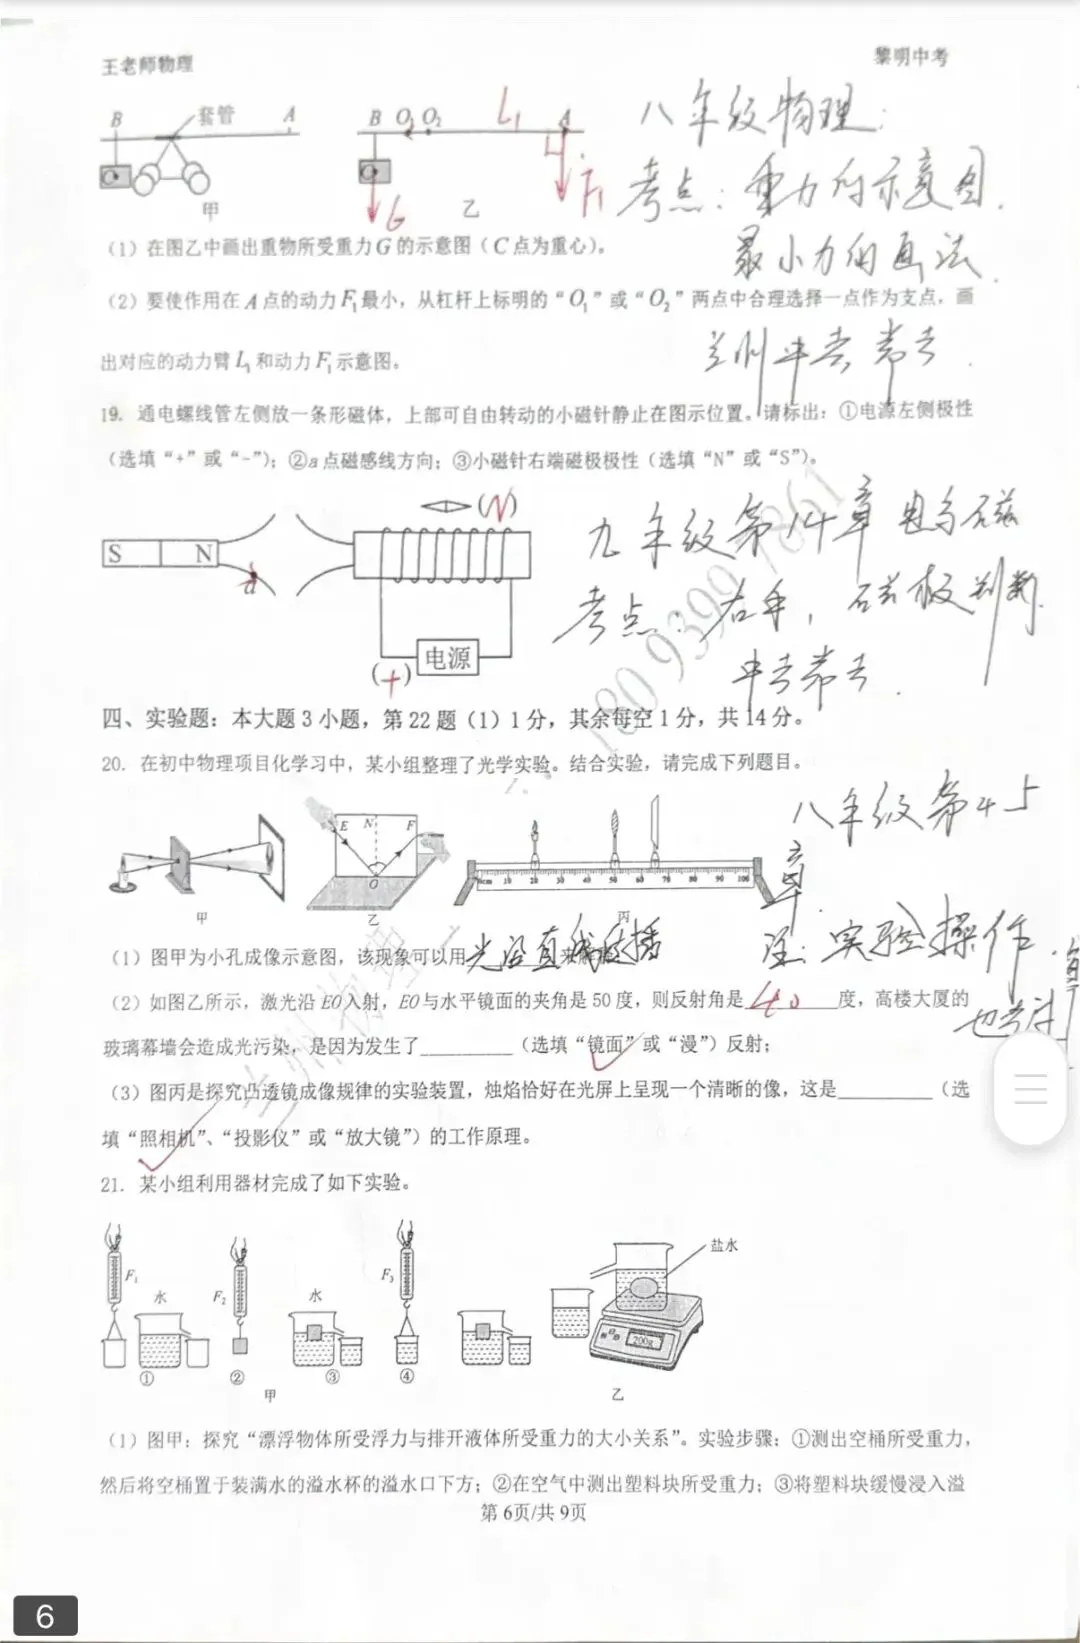 王老师物理
黎明中考
B 套管 A
甲
B O₁ O₂ L₁ A
C G F₁
乙
八年级物理:
考点:重力的示意图.
最小力的画法.
(1)在图乙中画出重物所受重力G的示意图(C点为重心)。
(2)要使作用在A点的动力F₁最小,从杠杆上标明的“O₁”或“O₂”两点中合理选择一点作为支点,画
出对应的动力臂L₁和动力F₁示意图。
兰州中考常考.
19. 通电螺线管左侧放一条形磁体,上部可自由转动的小磁针静止在图示位置。请标出:①电源左侧极性
(选填“+”或“-”);②a点磁感线方向;③小磁针右端磁极极性(选填“N”或“S”)。
(N)
S N
a
电源
(+)
九年级第14章 电与磁
考点:右手,磁极判断.
中考常考.
180 9399 7861
四、实验题:本大题3小题,第22题(1)1分,其余每空1分,共14分。
20. 在初中物理项目化学习中,某小组整理了光学实验。结合实验,请完成下列题目。
八年级第4、5
章.
注:实验操作.
也考过
E N F
O
0cm 10 20 30 40 50 60 70 80 90 100
甲 乙 丙
(1)图甲为小孔成像示意图,该现象可以用光沿直线传播来解释;
(2)如图乙所示,激光沿EO入射,EO与水平镜面的夹角是50度,则反射角是40度,高楼大厦的
玻璃幕墙会造成光污染,是因为发生了__________(选填“镜面”或“漫”)反射;
(3)图丙是探究凸透镜成像规律的实验装置,烛焰恰好在光屏上呈现一个清晰的像,这是__________(选
填“照相机”、“投影仪”或“放大镜”)的工作原理。
21. 某小组利用器材完成了如下实验。
F₁ 水 F₂ 水 F₃
盐水
200g
① ② ③ ④
甲
乙
(1)图甲:探究“漂浮物体所受浮力与排开液体所受重力的大小关系”。实验步骤:①测出空桶所受重力,
然后将空桶置于装满水的溢水杯的溢水口下方;②在空气中测出塑料块所受重力;③将塑料块缓慢浸入溢
第6页/共9页
6